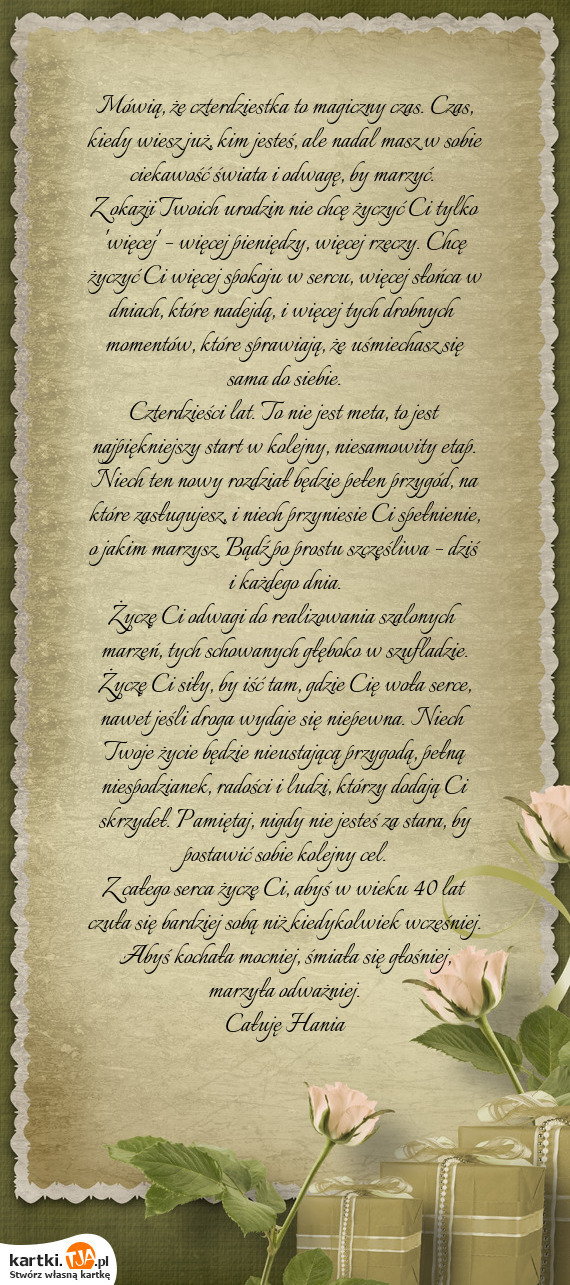 Mówią, że czterdziestka to magiczny czas. Czas,
kiedy wiesz już, kim jesteś, ale nadal masz w sobie
ciekawość świata i odwagę, by marzyć.
Z okazji Twoich urodzin nie chcę życzyć Ci tylko
'więcej' – więcej pieniędzy, więcej rzeczy. Chcę
życzyć Ci więcej spokoju w sercu, więcej słońca w
dniach, które nadejdą, i więcej tych drobnych
momentów, które sprawiają, że uśmiechasz się
sama do siebie.
Czterdzieści lat. To nie jest meta, to jest
najpiękniejszy start w kolejny, niesamowity etap.
Niech ten nowy rozdział będzie pełen przygód, na
które zasługujesz, i niech przyniesie Ci spełnienie,
o jakim marzysz. Bądź po prostu szczęśliwa – dziś
i każdego dnia.
Życzę Ci odwagi do realizowania szalonych
marzeń, tych schowanych głęboko w szufladzie.
Życzę Ci siły, by iść tam, gdzie Cię woła serce,
nawet jeśli droga wydaje się niepewna. Niech
Twoje życie będzie nieustającą przygodą, pełną
niespodzianek, radości i ludzi, którzy dodają Ci
skrzydeł. Pamiętaj, nigdy nie jesteś za stara, by
postawić sobie kolejny cel.
Z całego serca życzę Ci, abyś w wieku 40 lat
czuła się bardziej sobą niż kiedykolwiek wcześniej.
Abyś kochała mocniej, śmiała się głośniej,
marzyła odważniej.
Całuję Hania
kartki.TJA.pl
Stwórz własną kartkę